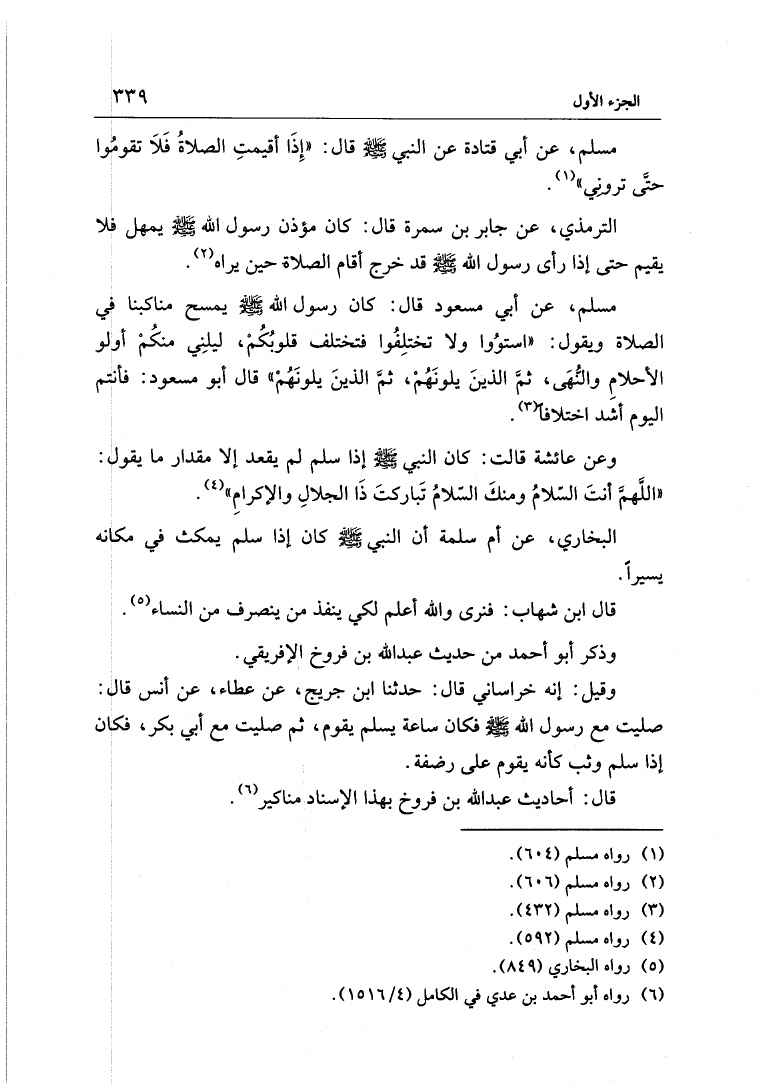 الجزء الأول ٣٣٩
مسلم، عن أبي قتادة عن النبي ﷺ قال: «إِذَا أقيمتِ الصلاةُ فَلَا تقومُوا
حتَّى تروني»(١).
الترمذي، عن جابر بن سمرة قال: كان مؤذن رسول الله ﷺ يمهل فلا
يقيم حتى إذا رأى رسول الله ﷺ قد خرج أقام الصلاة حين يراه(٢).
مسلم، عن أبي مسعود قال: كان رسول الله ﷺ يمسح مناكبنا في
الصلاة ويقول: «استوُوا ولا تختلِفُوا فتختلف قلوبُكُمْ، ليلنِي منكُمْ أولو
الأحلامِ والنُّهَى، ثمَّ الذينَ يلونَهُمْ، ثمَّ الذينَ يلونَهُمْ» قال أبو مسعود: فأنتم
اليوم أشد اختلافاً(٣).
وعن عائشة قالت: كان النبي ﷺ إذا سلم لم يقعد إلا مقدار ما يقول:
«اللَّهمَّ أنتَ السّلامُ ومنكَ السّلامُ تَباركتَ ذَا الجلالِ والإكرامِ»(٤).
البخاري، عن أم سلمة أن النبي ﷺ كان إذا سلم يمكث في مكانه
يسيراً.
قال ابن شهاب: فنرى والله أعلم لكي ينفذ من ينصرف من النساء(٥).
وذكر أبو أحمد من حديث عبدالله بن فروخ الإفريقي.
وقيل: إنه خراساني قال: حدثنا ابن جريج، عن عطاء، عن أنس قال:
صليت مع رسول الله ﷺ فكان ساعة يسلم يقوم، ثم صليت مع أبي بكر، فكان
إذا سلم وثب كأنه يقوم على رضفة.
قال: أحاديث عبدالله بن فروخ بهذا الإسناد مناكير(٦).
(١) رواه مسلم (٦٠٤).
(٢) رواه مسلم (٦٠٦).
(٣) رواه مسلم (٤٣٢).
(٤) رواه مسلم (٥٩٢).
(٥) رواه البخاري (٨٤٩).
(٦) رواه أبو أحمد بن عدي في الكامل (٤/ ١٥١٦).